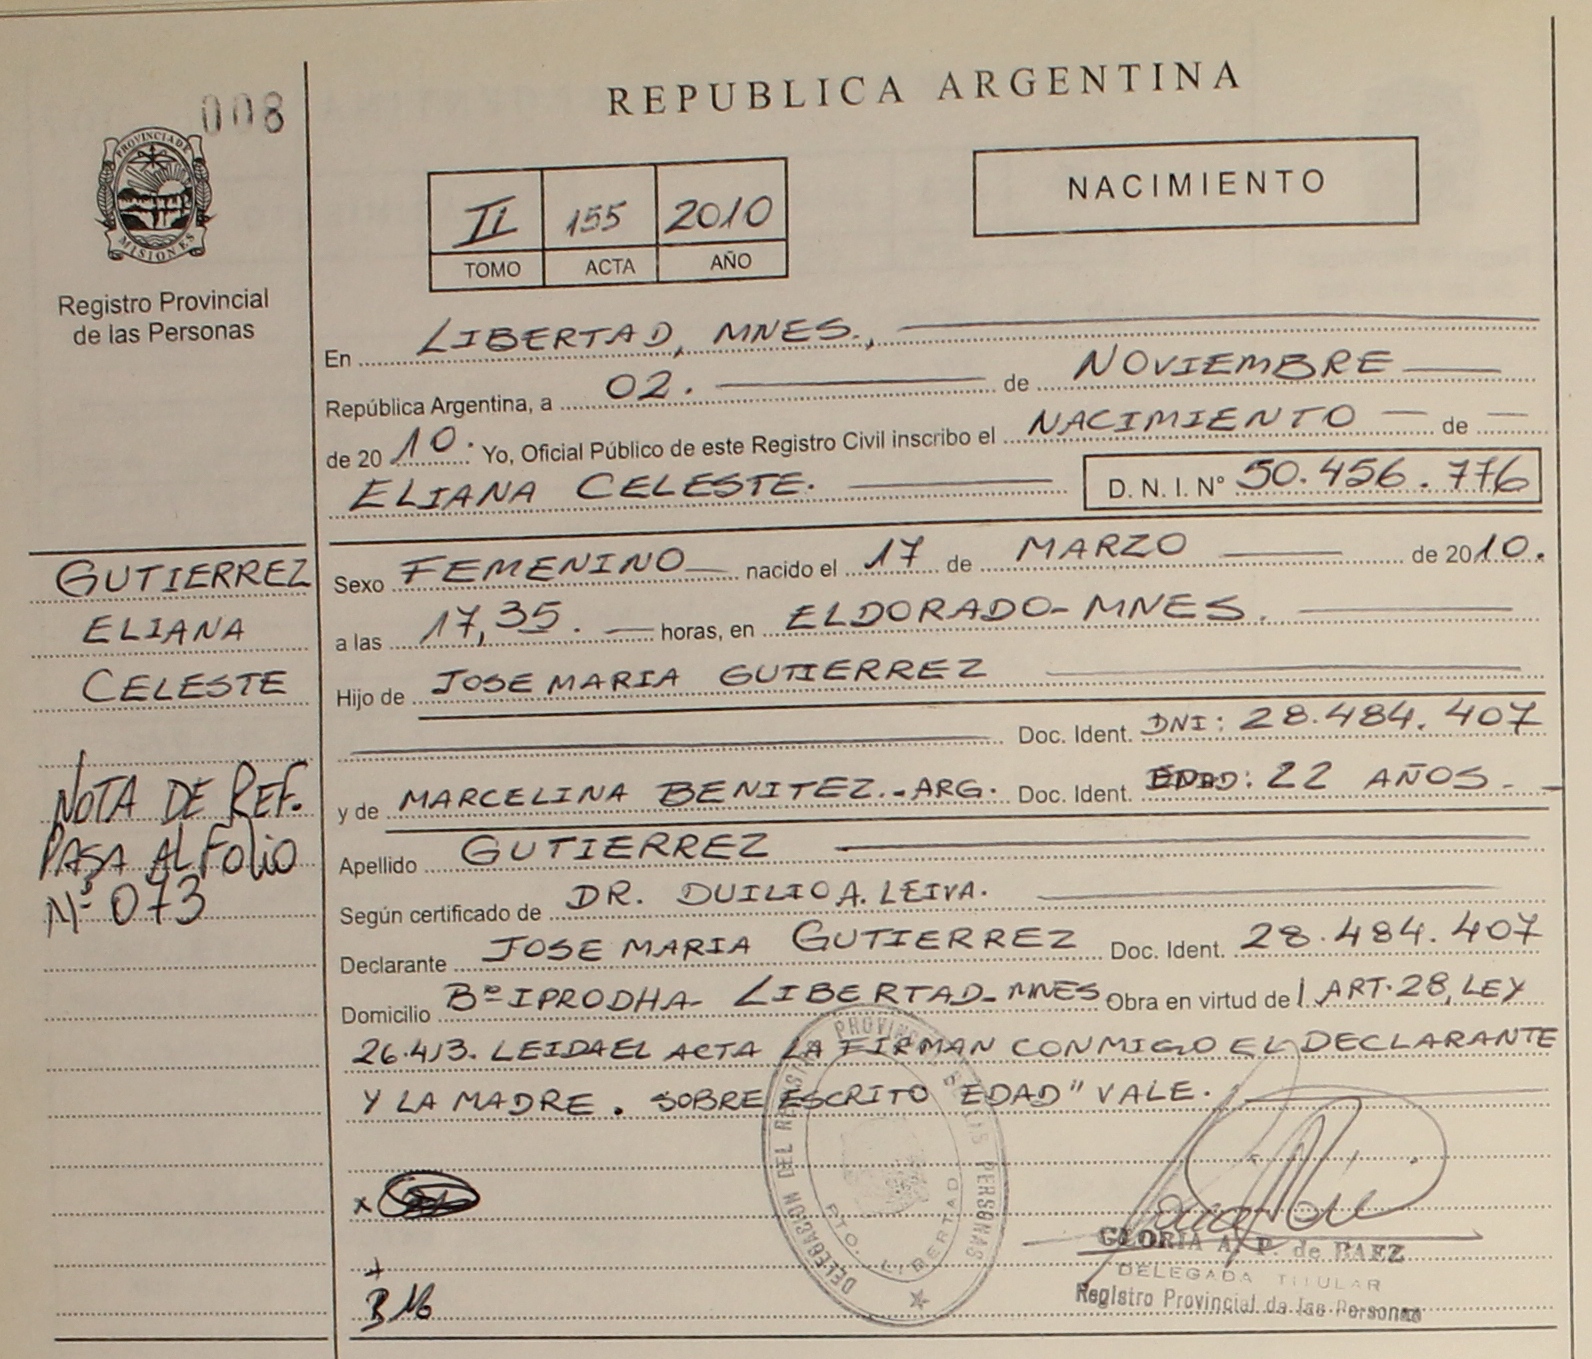 008
PROVINCIA DE
MISIONES
Registro Provincial
de las Personas
REPUBLICA ARGENTINA
II 155 2010
TOMO ACTA AÑO
NACIMIENTO
En LIBERTAD, MNES.,
República Argentina, a 02. de NOVIEMBRE
de 2010. Yo, Oficial Público de este Registro Civil inscribo el NACIMIENTO de
ELIANA CELESTE. D. N. I. N° 50.456.776
GUTIERREZ
ELIANA
CELESTE
NOTA DE REF.
PASA AL FOLIO
Nº 073
Sexo FEMENINO nacido el 17 de MARZO de 2010.
a las 17,35. horas, en ELDORADO-MNES.
Hijo de JOSE MARIA GUTIERREZ
Doc. Ident. DNI: 28.484.407
y de MARCELINA BENITEZ.-ARG. Doc. Ident. EDAD: 22 AÑOS.-
Apellido GUTIERREZ
Según certificado de DR. DUILIO A. LEIVA.
Declarante JOSE MARIA GUTIERREZ Doc. Ident. 28.484.407
Domicilio Bº IPRODHA- LIBERTAD-MNES Obra en virtud del ART.28, LEY
26.413. LEIDA EL ACTA LA FIRMAN CONMIGO EL DECLARANTE
Y LA MADRE. SOBRE ESCRITO "EDAD" VALE.
x
B M
DELEGACION DEL PERSONAS
PTO. LIBERTAD
GLORIA A. P. de PAEZ
DELEGADA TITULAR
Registro Provincial de las Personas